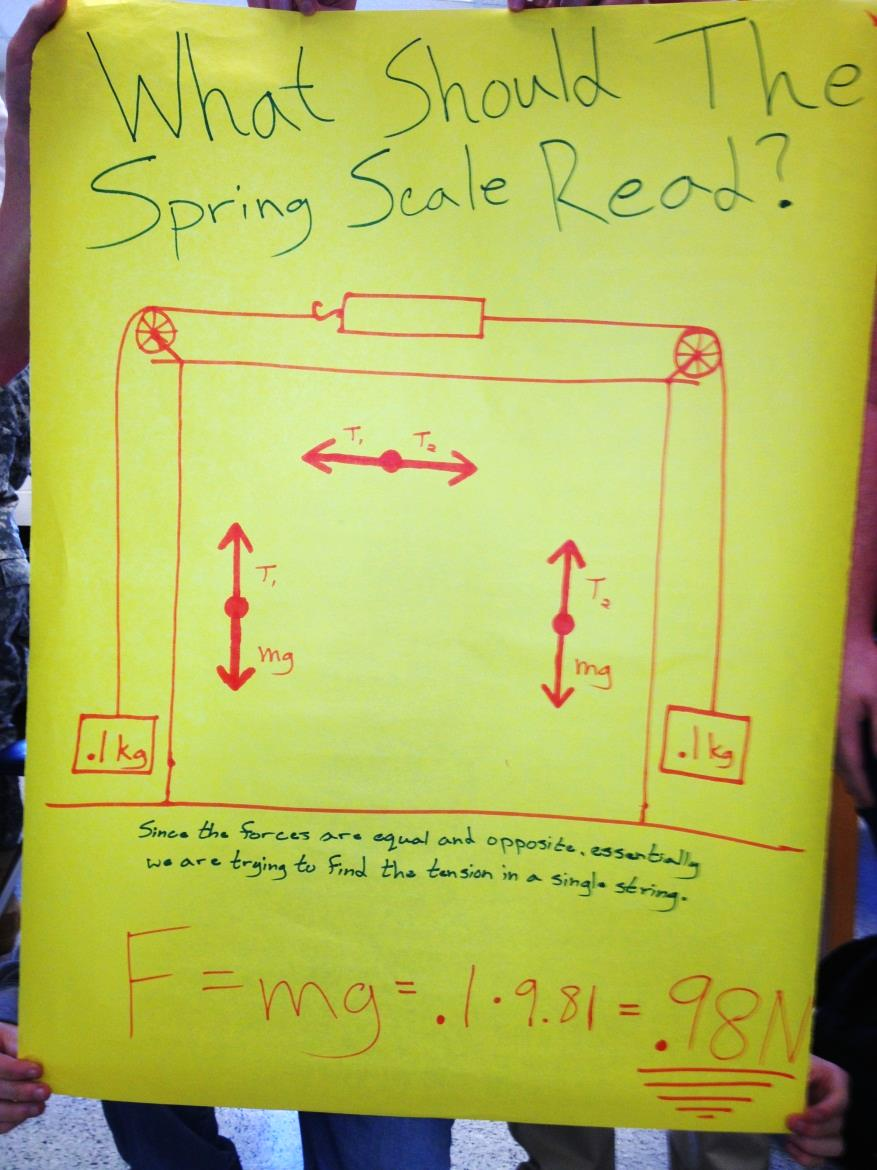 What Should The
Spring Scale Read?
T₁ T₂
T₁
T₂
mg
mg
.1 kg
.1 kg
Since the forces are equal and opposite, essentially
we are trying to find the tension in a single string.
F = mg = .1 · 9.81 = .98N